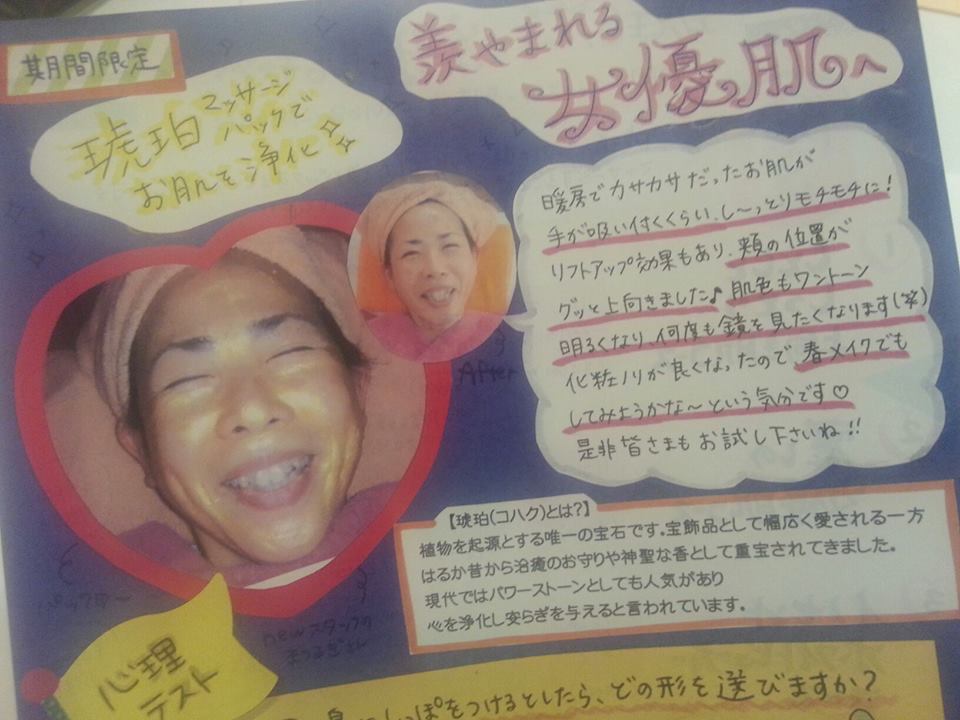 期間限定
琥珀マッサージ
パックで
お肌を浄化
羨やまれる
女優肌へ
暖房でカサカサだったお肌が
手が吸い付くくらい、し〜っとりモチモチに!
リフトアップ効果もあり、頬の位置が
グッと上向きました♪ 肌色もワントーン
明るくなり、何度も鏡を見たくなります(笑)
化粧ノリが良くなったので、春メイクでも
してみようかな〜という気分です♡
是非皆さまもお試し下さいね!!
After
【琥珀(コハク)とは?】
植物を起源とする唯一の宝石です。宝飾品として幅広く愛される一方
はるか昔から治癒のお守りや神聖な香として重宝されてきました。
現代ではパワーストーンとしても人気があり
心を浄化し安らぎを与えると言われています。
パック中〜
newスタッフの
心理
テスト
しっぽをつけるとしたら、どの形を選びますか?